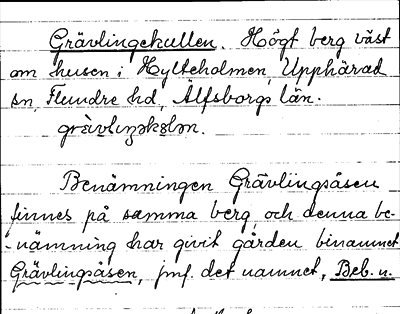 Grävlingekullen. Högt berg väst
om husen i Hylteholmen, Upphärad
sn, Flundre hd, Älfsborgs län.
Benämningen Grävlingsåsen
finnes på samma berg och denna be-
nämning har givit gården binamnet
Grävlingsåsen, jmf. det namnet, Beb. n.